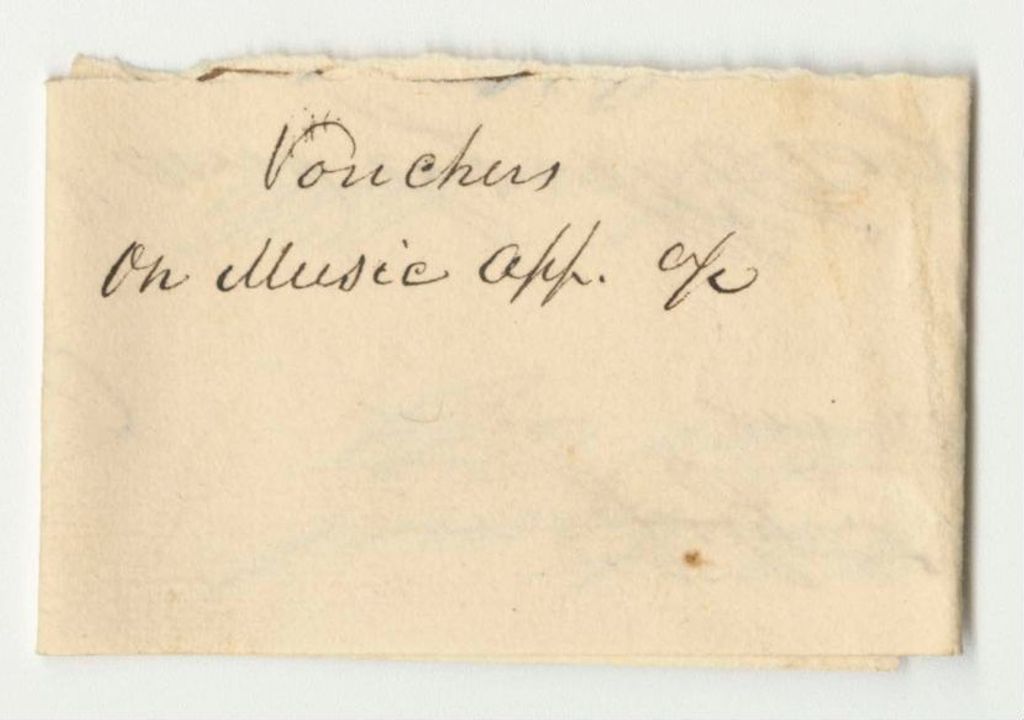 Vouchers
On Music App. a/c